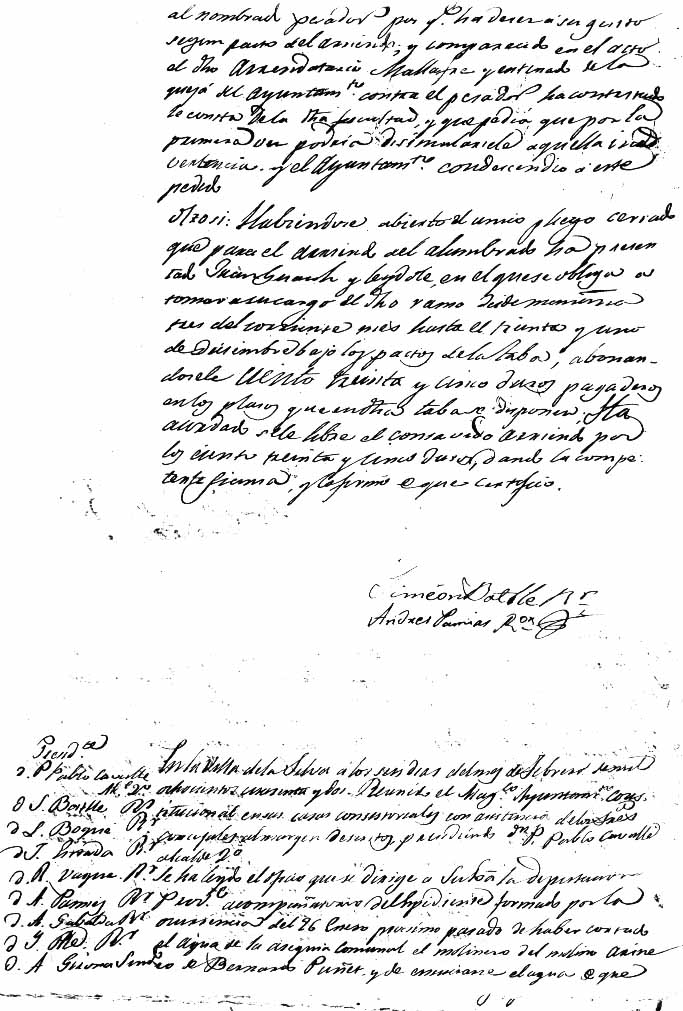 al nombrad pesador por q.e ha de ser a su gusto
segun pacto del arriendo, y comparecido en el acto
el dho Arrendatario Mallafre y enterado de la
queja del Ayuntam.to contra el pesador ha contestado
le consta de la dha facultad, y que pedia que por la
primera vez podria disimularsele aquella inad
vertencia. y el Ayuntam.to condescendio a este
pedido
Otrosi: Habiendose abierto el unico pliego cerrado
que para el arriend del alumbrado ha presen
tad Juan Guasch y leydole, en el que se obliga a
tomar a su cargo el dho ramo desde
tres del corriente mes hasta el treinta y uno
de Diciembre bajo los pactos de la taba, abonan-
dosele ciento treinta y cinco duros pagaderos
en los plasos que en dha taba se disponen, Ha
acordad se le libre el consavido arriend por
los ciento treinta y cinco duros, dand la compe-
tente fianza, y lo firmo de que certifico.
Simeon Batlle Rr
Andres Pamias
Presid.te
D. P Pablo Cavalle
Al. 2º
D S. Batlle Rr
D. L. Bogue Rr
D J. Rr
D. R. Rr
D. A. Pamies Rr
D. A. Rr
D. J. Rr
D. A Sindco
En la Villa de la Selva a los seis dias del mes de Febrero de mil
ochocientos cuarenta y dos. Reunido el Mag.co Ayuntam.to Cons
titucional en sus casas consistoriales con asistencia de los SSres
concejales al margen descritos presidiendo Dn P. Pablo Cavalle
alcalde 2º
Se ha leydo el oficio que se dirige a la diputacion
Prov.l acompañatorio del Expediente formado por la
ocurrencia del 26 Enero proximo pasado de haber cortado
el agua de la asequia comunal el molinero del molino
de Bernardo Puñet, y de el agua de que